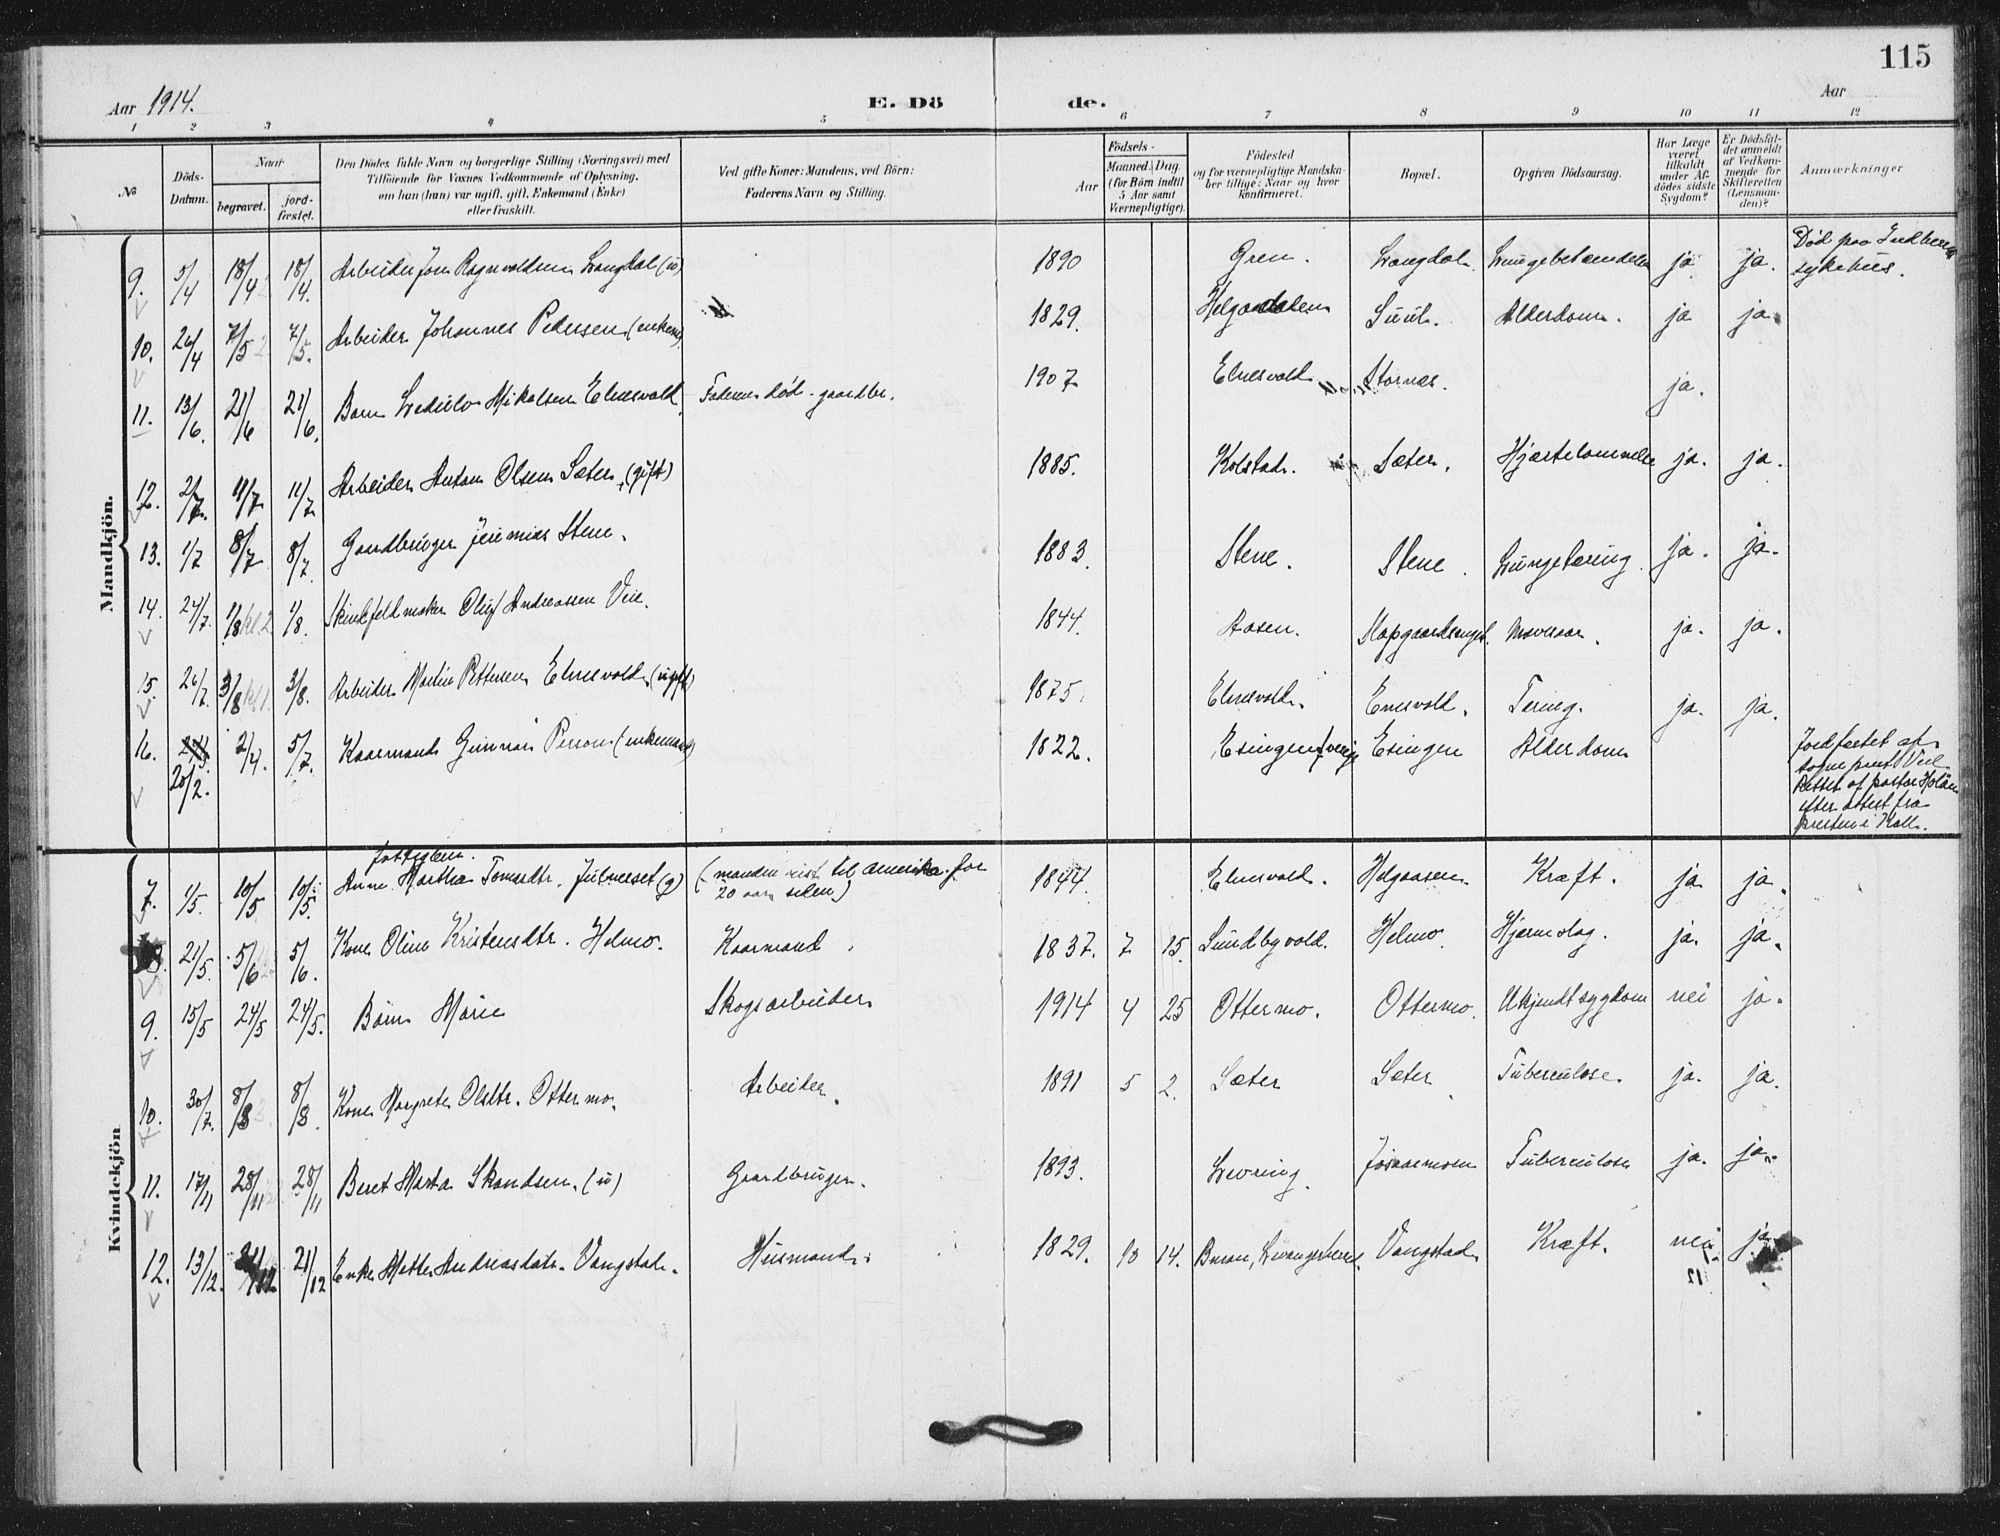 115
Aar 1914. E. Dö de. Aar
1 2 3 4 5 6 7 8 9 10 11 12
No
Döds-Datum.
Naar
begravet.
jord-fæstet.
Den Dödes fulde Navn og borgerlige Stilling (Næringsvei) med
Tilföiende for Voxnes Vedkommende af Oplysning,
om han (hun) var ugift, gift, Enkemand (Enke)
eller fraskilt.
Ved gifte Koner: Mandens, ved Börn:
Faderens Navn og Stilling.
Aar
Födsels-
Maaned. Dag.
(for Börn indtil
5 Aar samt
Værnepligtige).
Födested
og for værnepligtige Mandska-
ber tillige: Naar og hvor
konfirmeret.
Bopæl.
Opgiven Dödsaarsag.
Har Læge
været
tilkaldt
under Af-
dödes sidste
Sygdom?
Er Dödsfal-
det anmeldt
af Vedkom-
mende for
Skifteretten
(Lensman-
den)?
Anmærkninger
Mandkjön.
9. 5/4 18/4 18/4. Arbeider Jon Ragnvaldsen Langdal (u) 1890 Gren. Langdal Lungebetændelse ja ja. Død paa Indherred sykehus.
10. 26/4 7/5 7/5. Arbeider Johannes Pedersen (enkem) 1829. Helgaadalen Suul. Alderdom. ja ja
11. 13/6. 21/6 21/6. Barn Ludvik Mikalsen Elnesvold. Faderen død - gaardbr. 1907 Elnesvold Stornes. ja.
12. 2/7. 11/7 11/7 Arbeider Anton Olsen Sæter. (gift) 1885. Kolstad. Sæter. Hjertelammelse ja. ja.
13. 1/7 8/7 8/7. Gaardbruger Jeremias Stene. 1883. Stene. Stene. Lungetæring. ja. ja.
14. 24/7. 1/8 kl 2 1/8. Skindfeldmaker Oluf Andreassen Veie. 1844. Aasen. Slapgaardsenget. Mavesaar. ja. ja.
15. 26/7. 3/8 kl 1. 3/8. Arbeider Martin Pettersen Elnesvold (ugift) 1875. Elnesvold. Enesvold. Tæring. ja. ja.
16. 20/2. 2/4. 5/7. Kaarmand Gunnar Persson (enkemand) 1822. Esingen Sverige Esingen Alderdom Jordfæstet af
sogneprest Veie
Rettet af pastor Holan
efter attest fra
presten i Kall.
Kvindekjön
7. 1/5. 10/5 10/5. fattiglem.
Anne Martha Tomasdtr. Julneset (g) (manden reist til Amerika for
20 aar siden) 1844. Elnesvold. Helgaasen. Kræft. ja ja.
8. 21/5. 5/6 5/6. Kone Oline Kristensdtr. Helmo. Kaarmand 1837. 7 15. Sundbyvold. Helmo Hjerneslag. ja. ja.
9. 15/5 24/5 24/5. Barn Marie Skogsarbeider 1914 4 25 Ottermo. Ottermo. Ukjendt sygdom nei ja.
10. 30/7. 8/8 8/8. Kone Margrete Olsdtr. Ottermo. Arbeider. 1891 5 2. Sæter Sæter Tuberculose. ja. ja.
11. 17/11 28/11 28/11 Beret Marta Skandsen. (u) Gaardbruger. 1893. Levring. Tuberculose ja. ja.
12. 13/12. 21/12 21/12 Enke Mette Andreasdatr. Vangstad. Husmand. 1829. 10 14. Vangstad Kræft. nei ja.